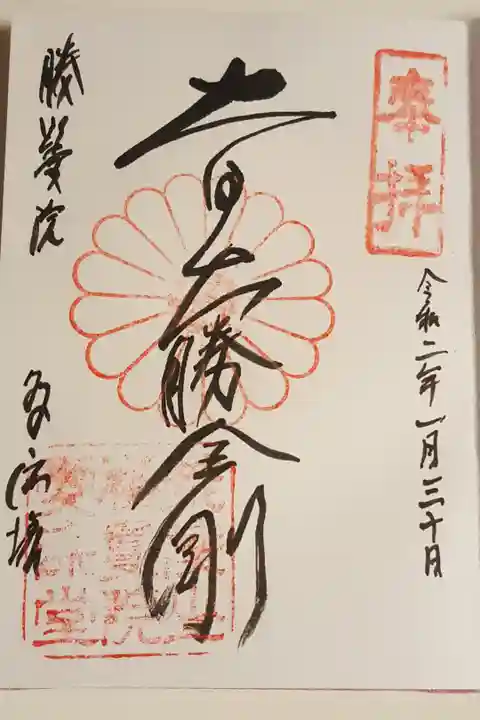 奉拝
令和二年一月三十日
大日大勝金剛
勝鬘院
多宝塔